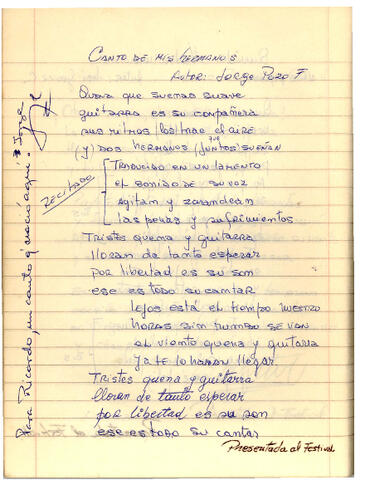 CANTO DE MIS HERMANOS
AUTOR: Jorge Pozo F
Quena que suenas suave
guitarra es su compañera
sus ritmos (los) trae el aire
(y) DOS HERMANOS (JUNTOS) que SUEÑAN
RECITADO
TRADUCIDO EN UN LAMENTO
el SONIDO DE SU VOZ
agitan y zarandean
las penas y sufrimientos
TRISTES quena y guitarra
lloran de tanto esperar
POR libertad es su son
ese es todo su cantar
lejos está el tiempo nuestro
horas sin rumbo se van
al viento quena y guitarra
ya te lo harán llegar
TRISTES quena y guitarra
lloran de tanto esperar
por libertad es su son
ese es todo su cantar
Presentada al Festival
Para Ricardo, un canto q' nació aquí. Jorge